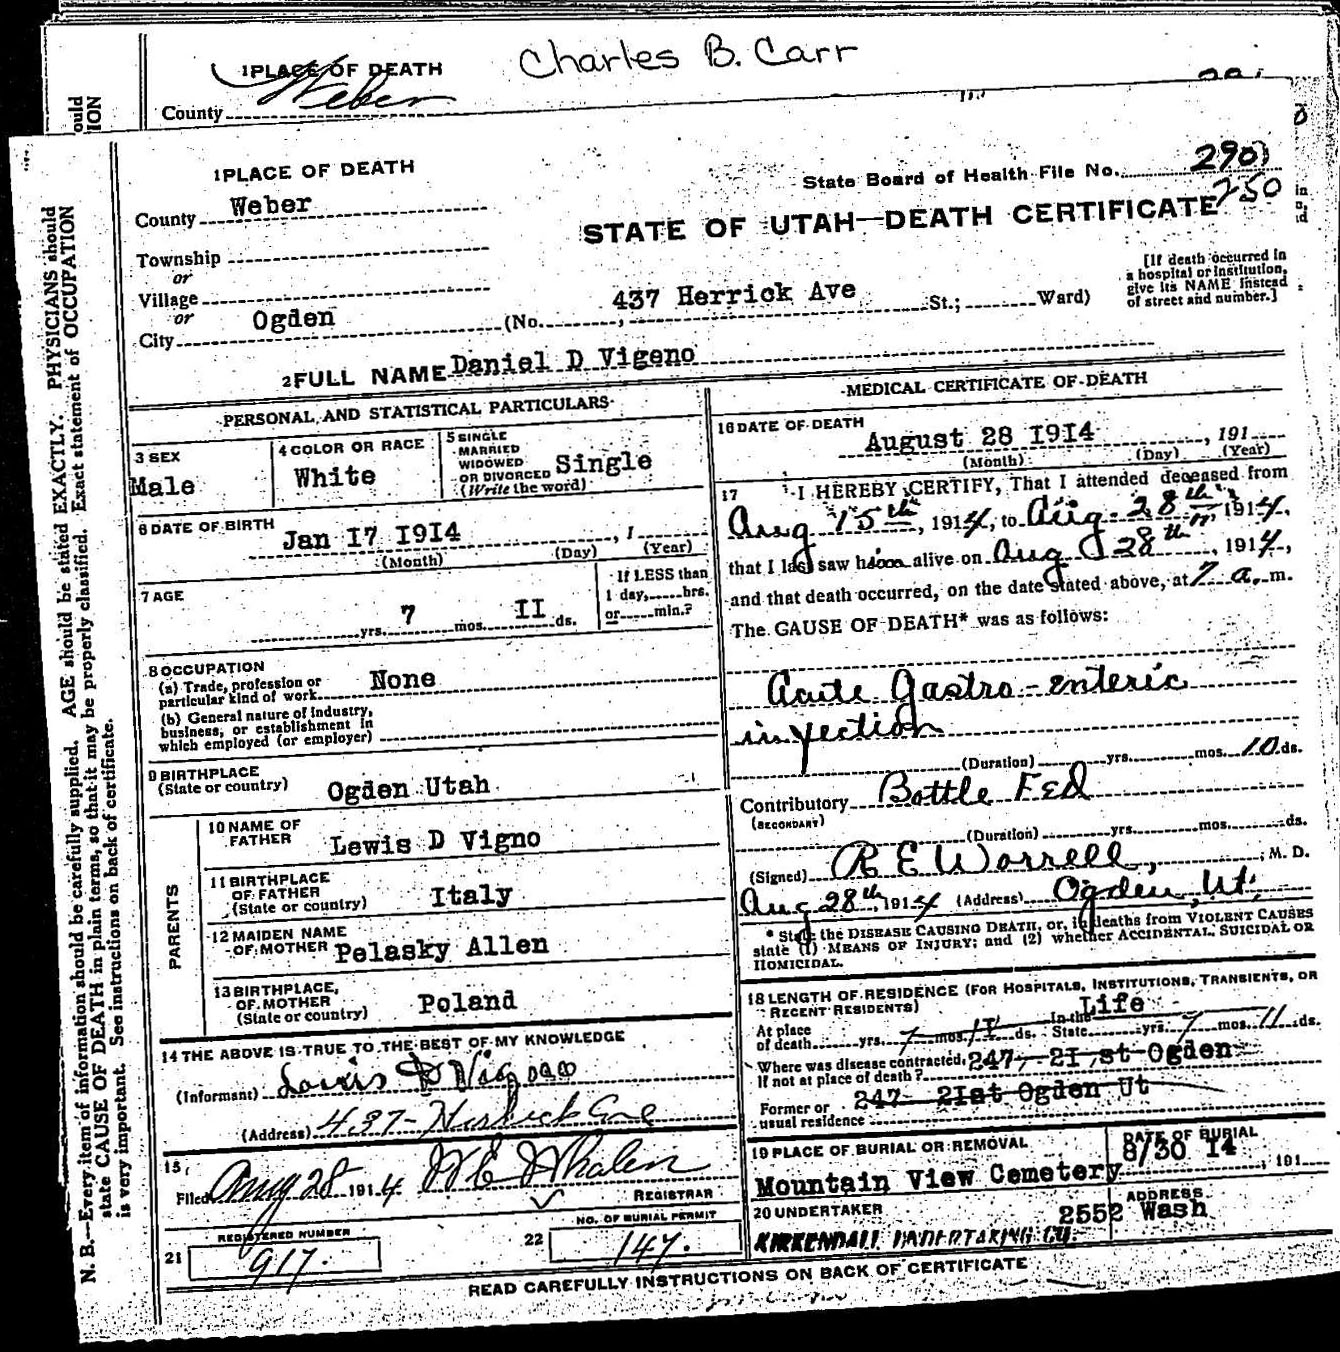 1 PLACE OF DEATH Charles B. Carr
County Weber
1 PLACE OF DEATH
State Board of Health File No. 290
250
County Weber
STATE OF UTAH—DEATH CERTIFICATE
Township
or
Village
or
City Ogden (No. 437 Herrick Ave St.; Ward)
[If death occurred in
a hospital or institution,
give its NAME instead
of street and number.]
2 FULL NAME Daniel D Vigeno
PERSONAL AND STATISTICAL PARTICULARS
3 SEX
Male
4 COLOR OR RACE
White
5 SINGLE
MARRIED
WIDOWED
OR DIVORCED Single
(Write the word)
6 DATE OF BIRTH
Jan I7 I9I4, 1
(Month) (Day) (Year)
7 AGE
yrs. 7 mos. II ds.
If LESS than
1 day, hrs.
or min.?
8 OCCUPATION
(a) Trade, profession or
particular kind of work None
(b) General nature of industry,
business, or establishment in
which employed (or employer)
9 BIRTHPLACE
(State or country) Ogden Utah
PARENTS
10 NAME OF
FATHER Lewis D Vigno
11 BIRTHPLACE
OF FATHER
(State or country) Italy
12 MAIDEN NAME
OF MOTHER Pelasky Allen
13 BIRTHPLACE,
OF MOTHER
(State or country) Poland
14 THE ABOVE IS TRUE TO THE BEST OF MY KNOWLEDGE
(Informant) Louis D
(Address) 437-
15
Filed Aug 28 1914 W E Whalen
REGISTRAR
21 REGISTERED NUMBER
917.
22 NO. OF BURIAL PERMIT
147.
MEDICAL CERTIFICATE OF DEATH
16 DATE OF DEATH
August 28 I9I4, 191
(Month) (Day) (Year)
17 I HEREBY CERTIFY, That I attended deceased from
Aug 15th, 1914, to Aug. 28th, 1914,
that I last saw him alive on Aug 28th, 1914,
and that death occurred, on the date stated above, at 7 a. m.
The CAUSE OF DEATH* was as follows:
Acute Gastro-enteric
infection
(Duration) yrs. mos. 10 ds.
Contributory Bottle Fed
(SECONDARY)
(Duration) yrs. mos. ds.
(Signed) R E Worrell, M. D.
Aug 28th, 1914 (Address) Ogden, Ut.
* State the DISEASE CAUSING DEATH, or, in deaths from VIOLENT CAUSES
state (1) MEANS OF INJURY; and (2) whether ACCIDENTAL, SUICIDAL OR
HOMICIDAL.
18 LENGTH OF RESIDENCE (FOR HOSPITALS, INSTITUTIONS, TRANSIENTS, OR
RECENT RESIDENTS) Life
At place
of death yrs. 7 mos. 11 ds. In the
State yrs. 7 mos. 11 ds.
Where was disease contracted,
If not at place of death? 247- 2I st Ogden
Former or
usual residence 247- 2Ist Ogden Ut
19 PLACE OF BURIAL OR REMOVAL
Mountain View Cemetery
DATE OF BURIAL
8/30 I4, 191
20 UNDERTAKER
KIRKENDALL UNDERTAKING CO.
ADDRESS
2552 Wash
READ CAREFULLY INSTRUCTIONS ON BACK OF CERTIFICATE
N. B.—Every item of information should be carefully supplied. AGE should be stated EXACTLY. PHYSICIANS should
state CAUSE OF DEATH in plain terms, so that it may be properly classified. Exact statement of OCCUPATION
is very important. See instructions on back of certificate.